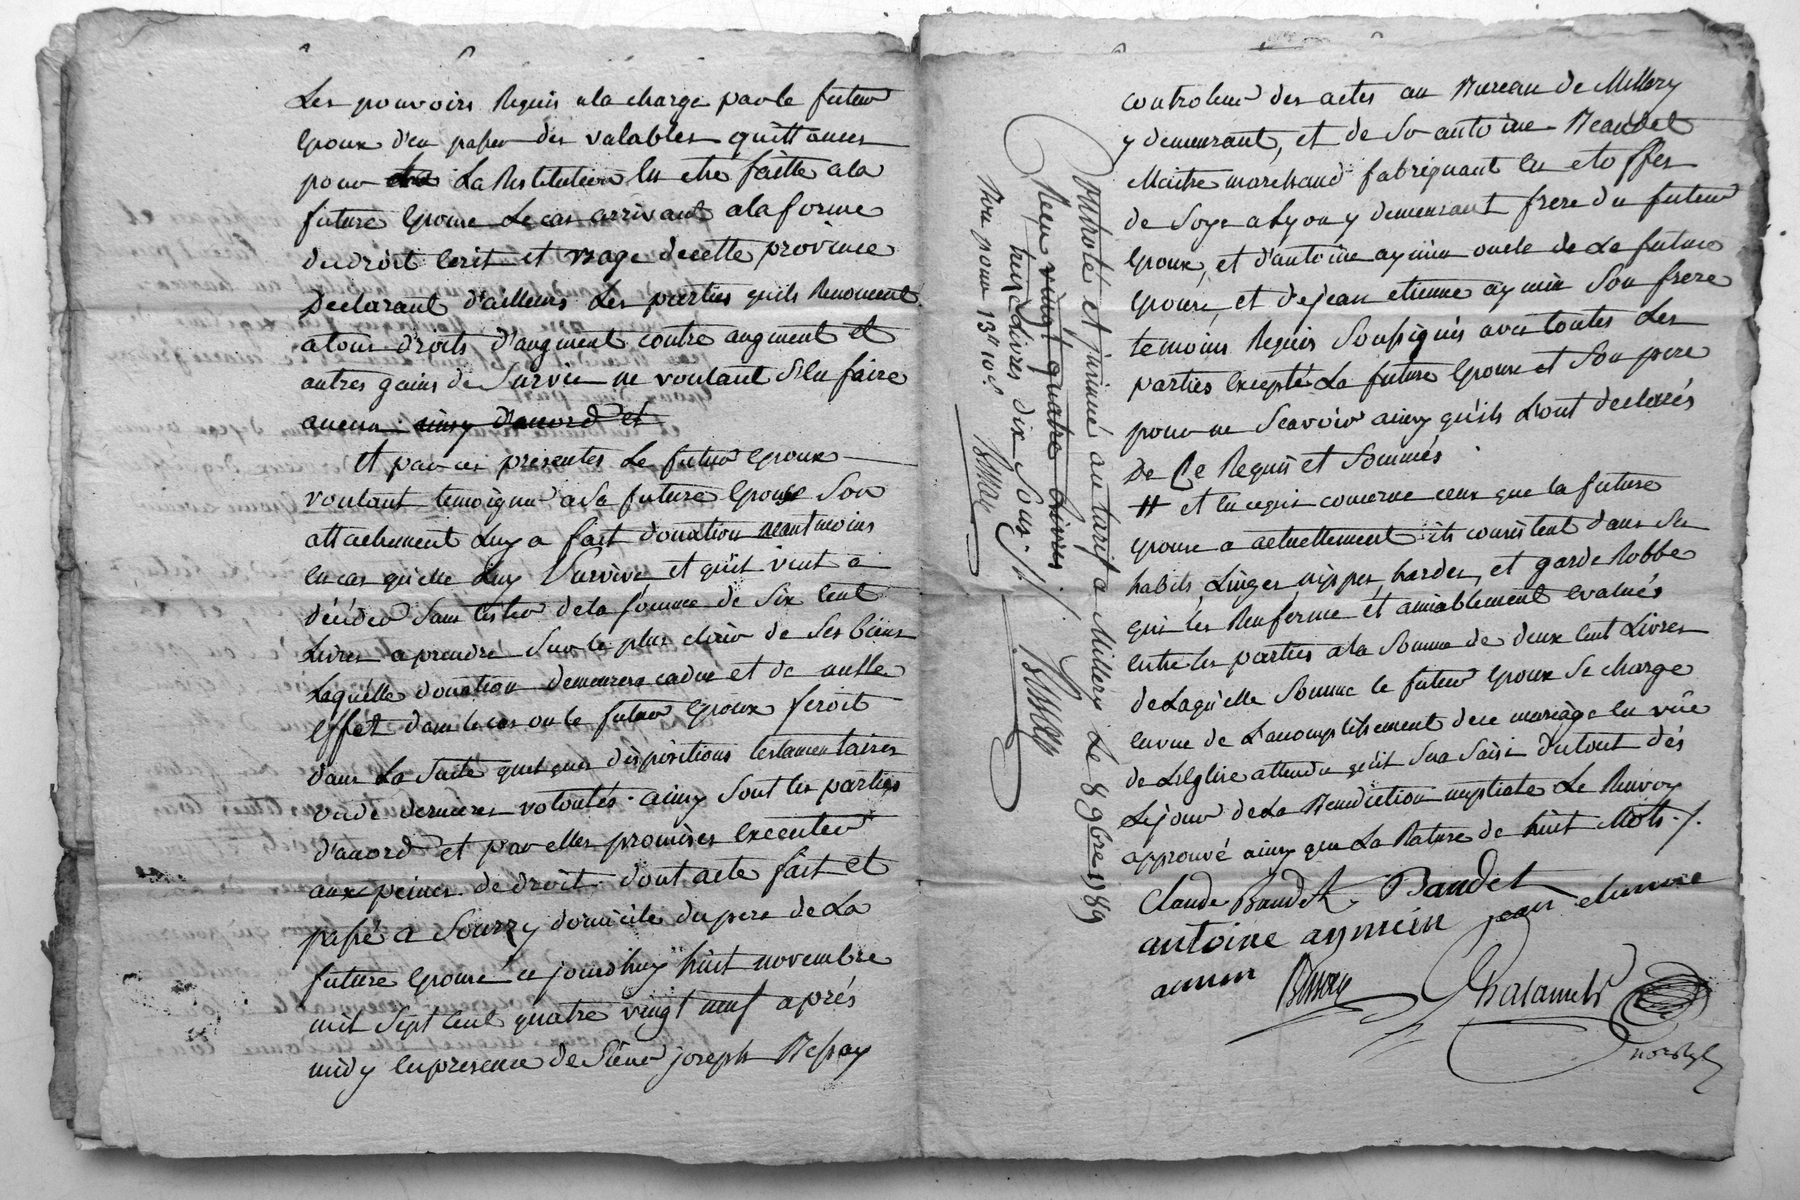 Les pouvoirs Requis a la charge par le futur
Epoux d'en passer des valables quittances
pour La Restitution En etre faitte a la
future Epouse Le cas arrivant a la forme
du droit Ecrit et usage de cette province
Declarant d'ailleurs Les parties qu'ils Renoncent
a tous droits d'augment contre augment et
autres gains de Survie ne voulant S'En faire
aucun ainsy d'accord et
Et par ces presentes Le futur Epoux
voulant temoigner a Sa future Epouse Son
attachement Luy a fait donation neantmoins
En cas qu'elle Luy Survive et qu'il vint a
décéder Sans tester de la somme de Six Cent
Livres a prendre Sur le plus clair de Ses biens
Laquelle donation demeurera caduc et de nulle
Effet dans le cas ou le futur Epoux feroit
dans La Suite quelques dispositions testamentaires
ou de dernieres volontés. ainsy Sont les parties
d'accord et par elles promises Executer
aux peines de droit dont acte fait et
passé a Sourzy domicile du pere de La
future Epouse ce jourdhuy huit novembre
mil Sept Cent quatre vingt neuf aprés
midy En presence de Sieur joseph Bessay
controleur des actes au Bureau de Millery
y demeurant, et de Sr antoine Beaudet
Maitre marchand fabriquant En etoffes
de Soye a Lyon y demeurant frere du futur
Epoux, et d'antoine aymin oncle de La future
Epouse, et de jean etienne aymin Son frere
temoins Requis Soussignés avec toutes Les
parties Excepté La future Epouse et Son pere
pour ne Scavoir ainsy qu'ils L'ont declarés
De Ce Requis et Sommés
# et En ce qui concerne ceux que la future
Epouse a actuellement ils consistent dans Ses
habits, Linges nippes, hardes, et garde Robbe
qui les Renferme et amiablement Evalués
Entre les parties a la Somme de deux Cent Livres
de Laquelle Somme le futur Epoux Se charge
En vue de L'accomplissement de ce mariage En vüe
de L'Eglise attendu qu'il Sera Saisi du tout dés
Le jour de La Benediction nuptiale Le Renvoy
approuvé ainsy que La Rature de huit Mots ./.
Claude Baudet Baudet
antoine aymein jean etienne
aemin Bessay Chalamel
Controlé et insinué au tarif a Millery Le 8 9bre 1789
Reçu vingt quatre Livres
treize Livres dix Sous ./. Bessay
Bon pour 13ᵗᵗ 10ˢ Bessay